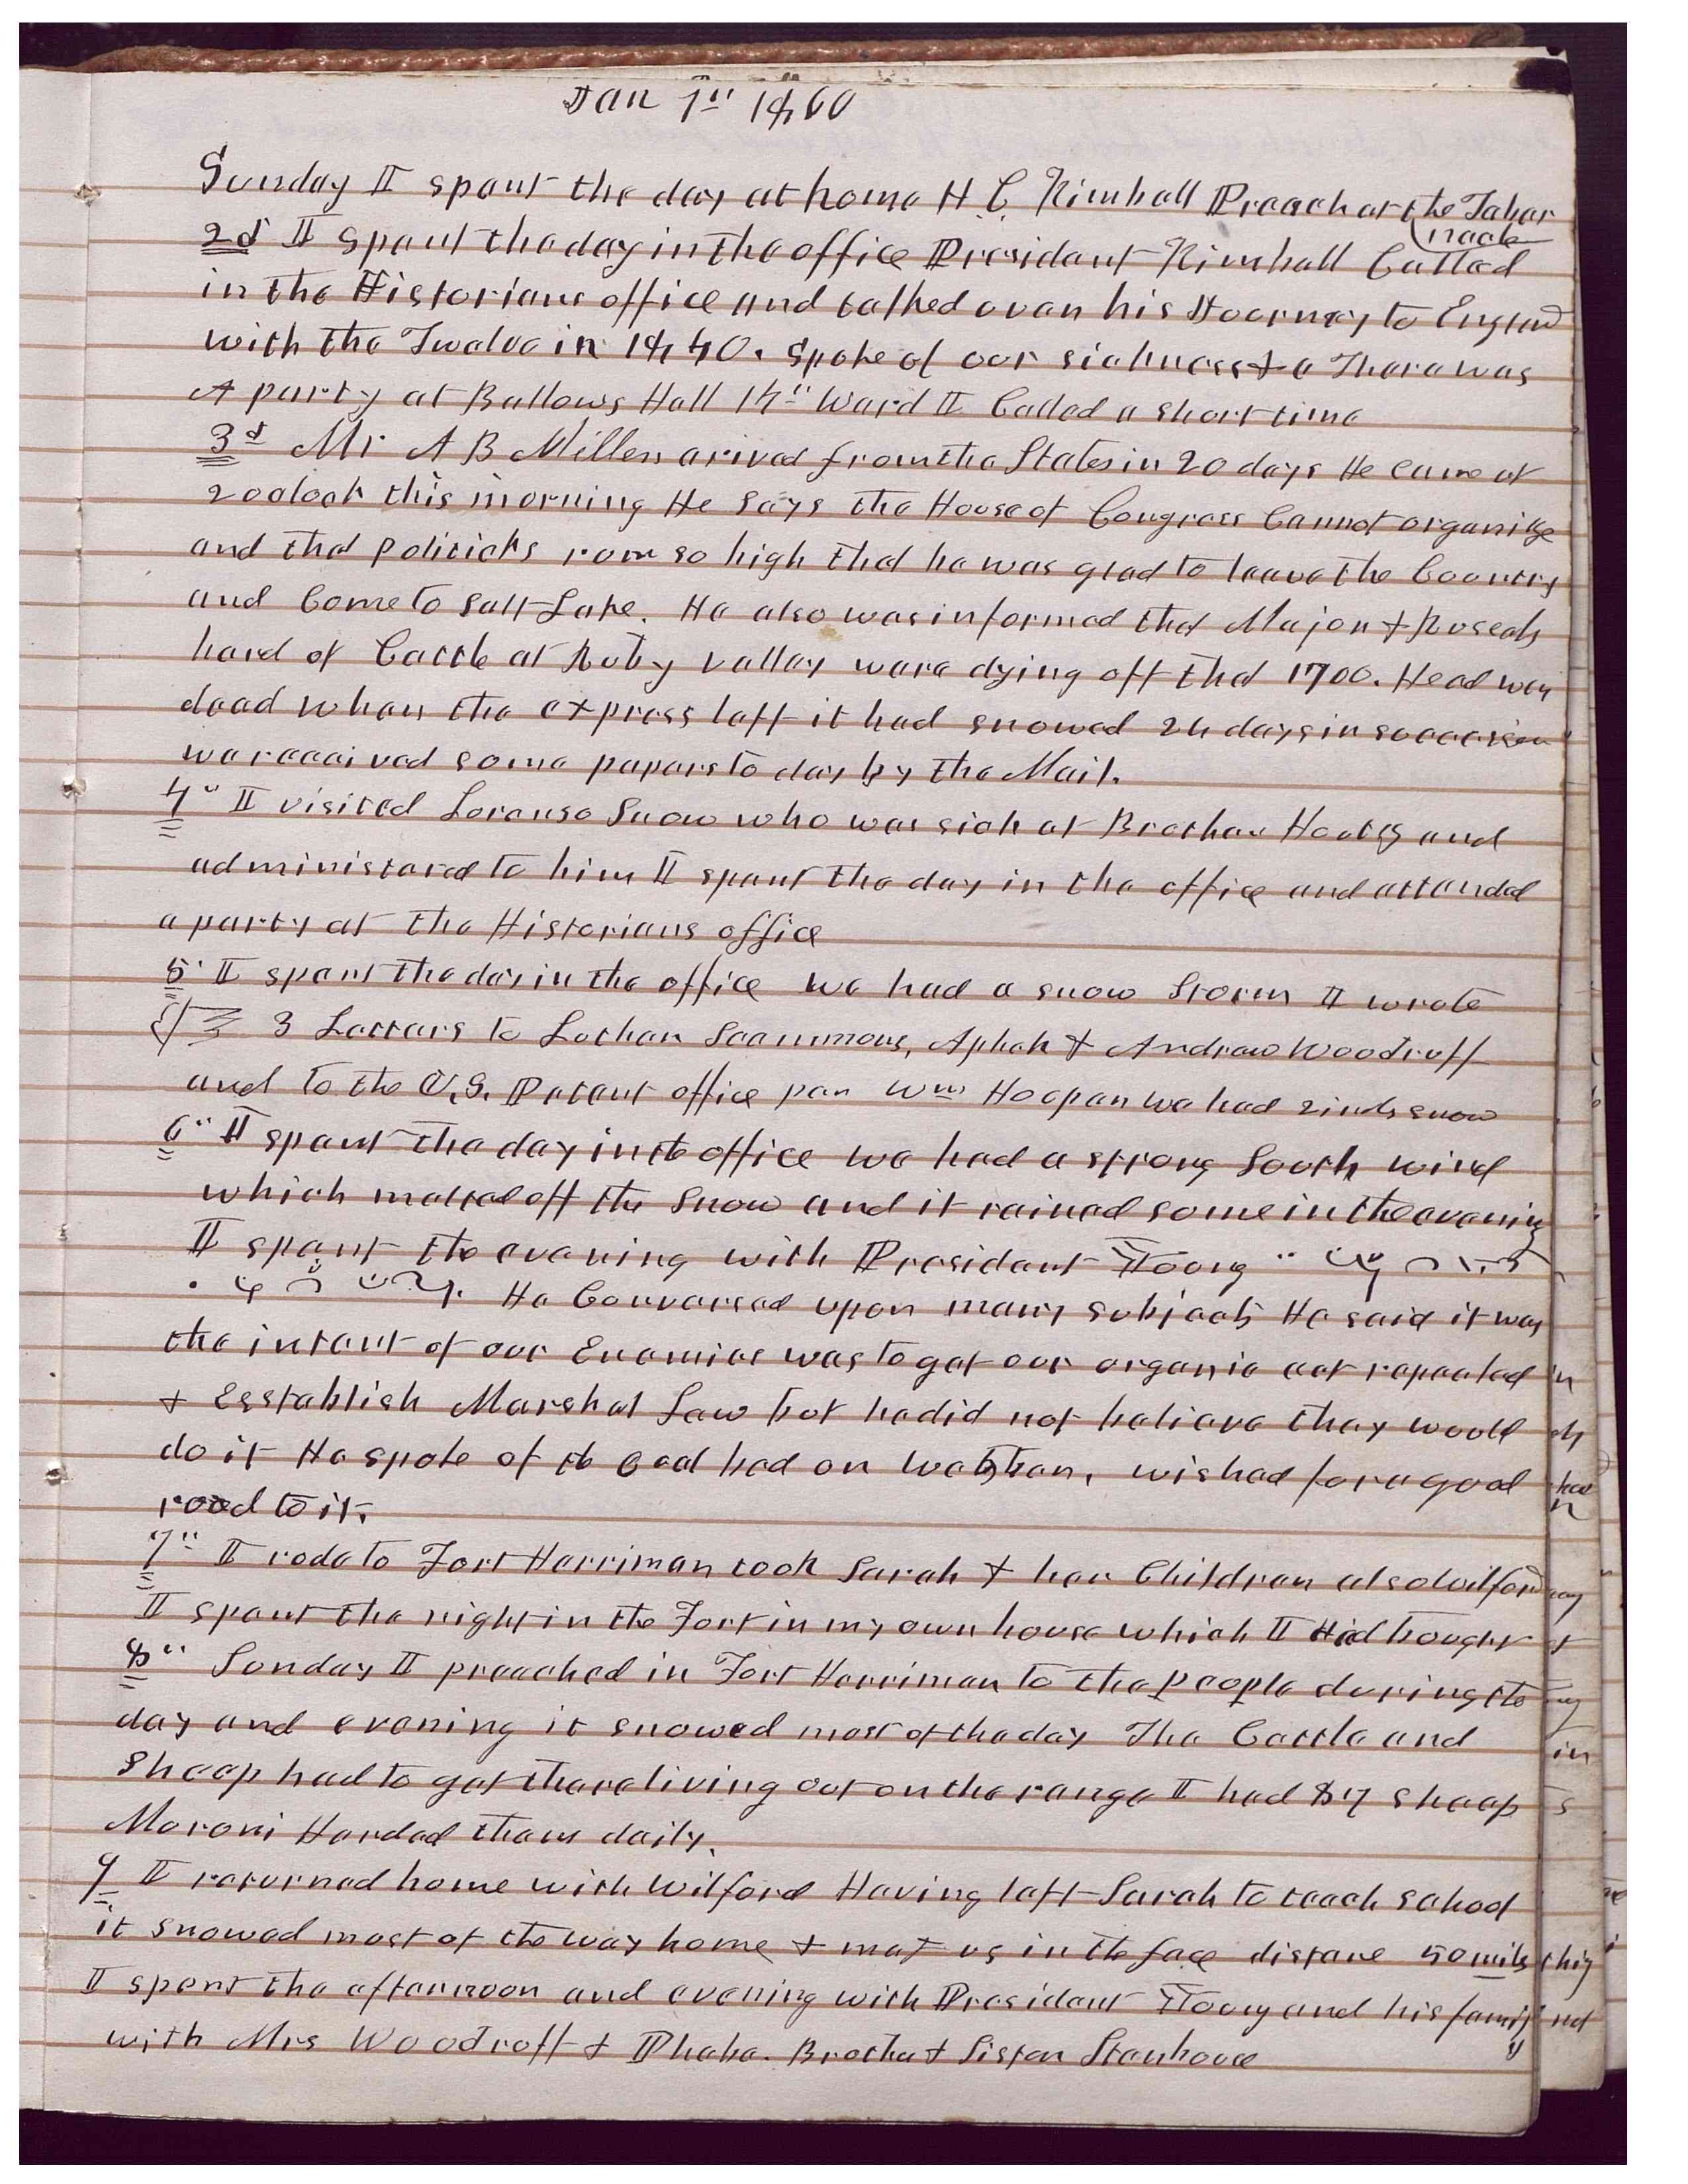 Jan 1st 1860
Sunday I spent the day at home H C. Kimball Preach at the Taber
nacle
2d I spent the day in the office President Kimball Called
in the Historians office and talked over his Journey to England
with the Twelve in 1840. Spoke of our sickness &c There was
A party at Ballows Hall 14th Ward I Called a short time
3d Mr A B Miller arived from the States in 20 days He came at
2 oclock this morning He says the House of Congress Cannot organize
and that politicks rum so high that he was glad to leave the Country
and Come to Salt Lake. He also was informed that Major & Rusels
herd of Cattle at Ruby valley were dying off that 1700. Head were
dead when the express left it had snowed 24 days in succession
we received some papers to day by the Mail.
4th I visited Lorenzo Snow who was sick at Brother Hootz and
administered to him I spent the day in the office and attended
a party at the Historians office
5th I spent the day in the office we had a snow storm I wrote
3 Letters to Luther Scammons, Aphek & Andrew Woodruff
and to the U.S. Patent office per Wm Hooper we had 2 inch snow
6th I spent the day in the office we had a strong South wind
which melted off the snow and it rained some in the evening
I spent the evening with President Young
He Conversed upon many subjects He said it was
the intent of our Enemies was to get our organic act repealed
& Esstablish Marshal Law but he did not believe they would
do it He spoke of the Coal bed on Webber, wished for a good
road to it.
7th I rode to Fort Harriman took Sarah & her Children also Wilford
I spent the night in the Fort in my own house which I Had bought
8th Sunday I preached in Fort Harriman to the people during the
day and evening it snowed most of the day The Cattle and
Sheep had to get there living out on the range I had 87 sheep
Moroni Herded them daily.
9 I returned home with Wilford Having left Sarah to teach school
it snowed most of the way home & met us in the face distane 50 miles
I spent the afternoon and evening with President Young and his family
with Mrs Woodruff & Phebe. Brother & Sister Stenhouse